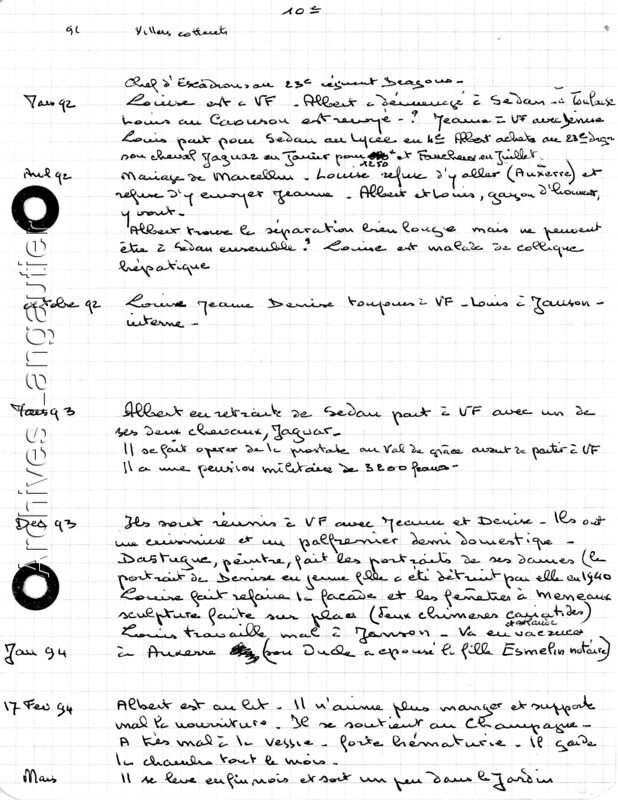 10e
91 Villers cotterets
Chef d'Escadrons au 23e régiment Dragons -
Mars 92 Louise est à VF - Albert a déménagé à Sedan - à Toulouse
Louis au Caousou est renvoyé - ? Jeanne à VF avec Denise
Louis part pour Sedan au Lycée en 4e Albert achete au 23e drag
son cheval Jaguar en Janvier pour 1250 et Faucheux en Juillet.
Avril 92 Mariage de Marcellin - Louise refuse d'y aller (Auxerre) et
refuse d'y envoyer Jeanne - Albert et Louis, garçon d'honneur,
y vont -
Albert trouve la séparation bien longue mais ne peuvent
être à Sedan ensemble ? Louise est malade de collique
hépatique
octobre 92 Louise Jeanne Denise toujours à VF - Louis à Janson -
interne -
Mars 93 Albert en retraite de Sedan part à VF avec un de
ses deux chevaux, Jaguar -
Il se fait operer de la prostate au Val de grâce avant de partir à VF
Il a une pension militaire de 3200 francs -
Dec 93 Ils sont réunis à VF avec Jeanne et Denise - Ils ont
une cuisiniere et un palfrenier demi domestique -
Dastugue, peintre, fait les portraits de ses dames (le
portrait de Denise en jeune fille a été détruit par elle en 1940
Louise fait refaire la facade et les fenêtres à meneaux
sculpture faite sur place (deux chimeres cariatides)
Louis travaille mal à Janson - Va en vacances
Jan 94 à Auxerre (son Oncle a epousé la fille Esmelin notaire)
17 Fev 94 Albert est au lit - Il n'aime plus manger et supporte
mal la nourriture - Il se soutient au Champagne -
A très mal à la vessie - forte hématurie - Il garde
la chambre tout le mois -
Mars Il se leve enfin et sort un peu dans le Jardin
Archives Langautier